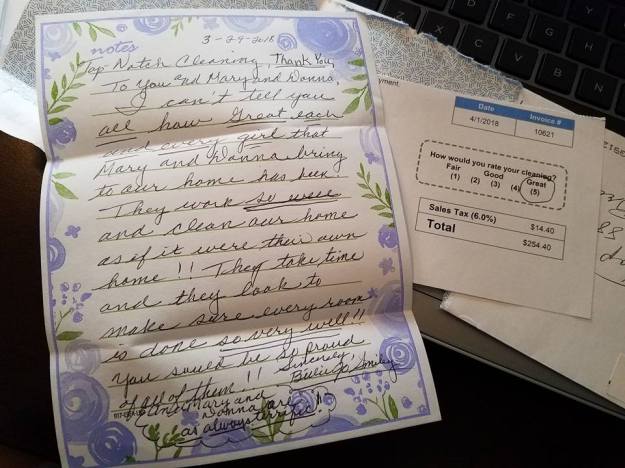 notes
3-29-2018
Top Notch Cleaning, Thank You,
To You and Mary and Donna,
I can't tell you
all how Great each
and every girl that
Mary and Donna bring
to our home has been
They work so well
and clean our home
as if it were their own
home !! They take time
and they look to
make sure every room
is done so very well!!
You sould be so proud
of all of them !! Sincerely,
Smiley
Mary and
Donna are
as always terrific!!
yment.
Date
Invoice #
4/1/2018
10621
How would you rate your cleaning?
Fair Good Great
(1) (2) (3) (4) (5)
Sales Tax (6.0%) $14.40
Total $254.40